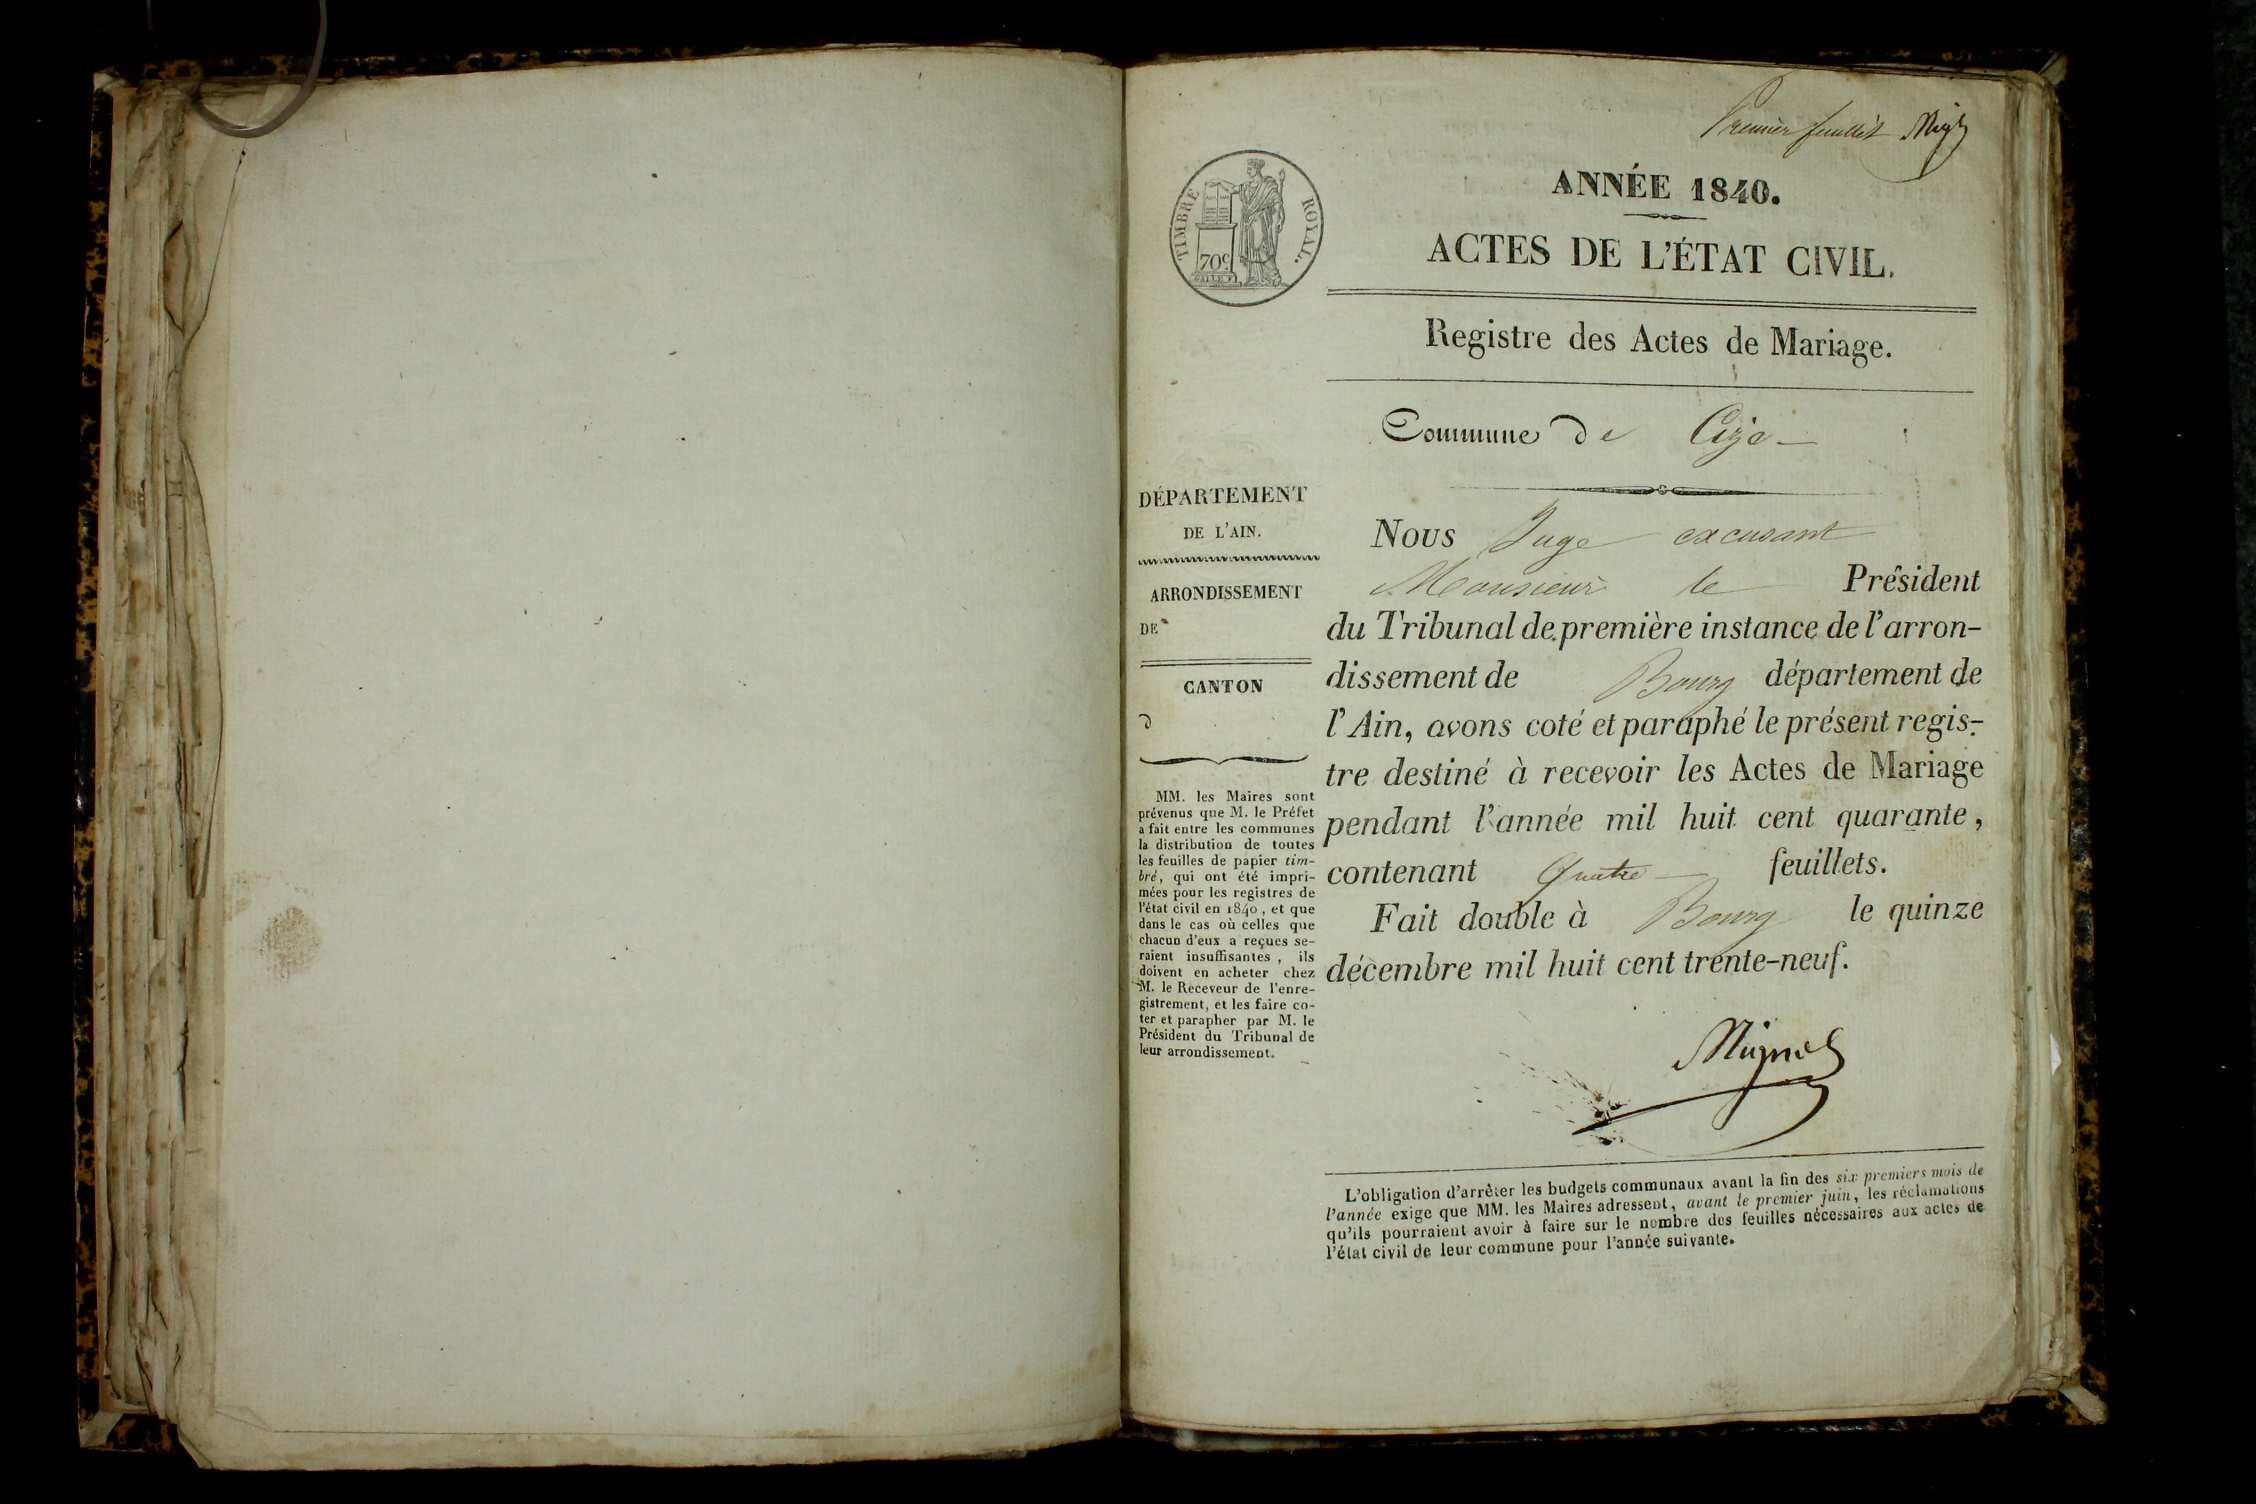 Premier feuillet Mig
TIMBRE ROYAL.
70c
ANNÉE 1840.
ACTES DE L'ÉTAT CIVIL.
Registre des Actes de Mariage.
Commune de Cize
DÉPARTEMENT
DE L'AIN.
ARRONDISSEMENT
DE
CANTON
d
MM. les Maires sont
prévenus que M. le Préfet
a fait entre les communes
la distribution de toutes
les feuilles de papier tim-
bré, qui ont été impri-
mées pour les registres de
l'état civil en 1840, et que
dans le cas où celles que
chacun d'eux a reçues se-
raient insuffisantes, ils
doivent en acheter chez
M. le Receveur de l'enre-
gistrement, et les faire co-
ter et parapher par M. le
Président du Tribunal de
leur arrondissement.
Nous Juge excusant
Monsieur le Président
du Tribunal de première instance de l'arron-
dissement de Bourg département de
l'Ain, avons coté et paraphé le présent regis-
tre destiné à recevoir les Actes de Mariage
pendant l'année mil huit cent quarante,
contenant Quatre feuillets.
Fait double à Bourg le quinze
décembre mil huit cent trente-neuf.
L'obligation d'arrêter les budgets communaux avant la fin des six premiers mois de
l'année exige que MM. les Maires adressent, avant le premier juin, les réclamations
qu'ils pourraient avoir à faire sur le nombre des feuilles nécessaires aux actes de
l'état civil de leur commune pour l'année suivante.